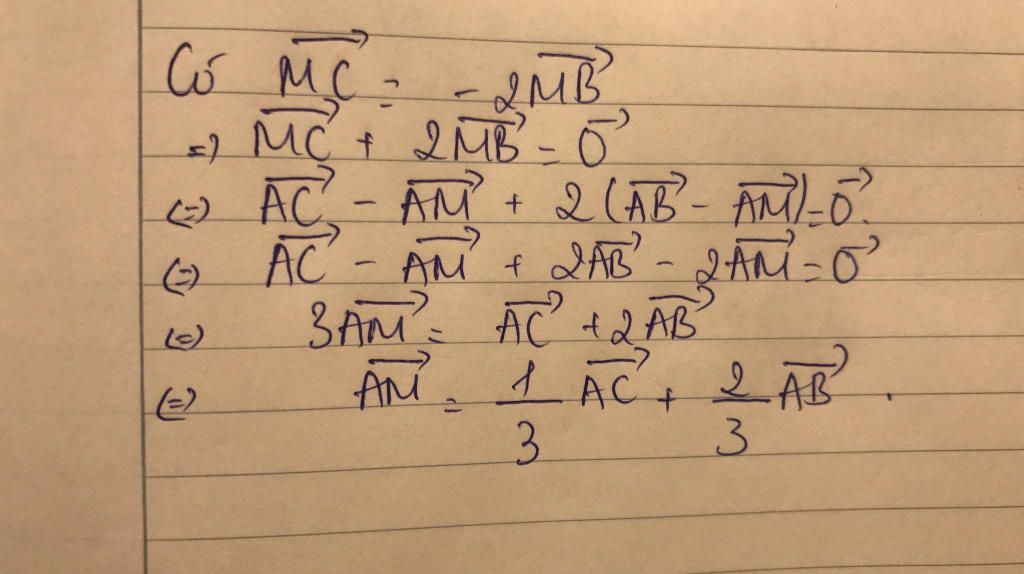 Có $\overrightarrow{MC} = -2\overrightarrow{MB}$
=> $\overrightarrow{MC} + 2\overrightarrow{MB} = \overrightarrow{0}$
(=) $\overrightarrow{AC} - \overrightarrow{AM} + 2(\overrightarrow{AB} - \overrightarrow{AM}) = \overrightarrow{0}.$
(=) $\overrightarrow{AC} - \overrightarrow{AM} + 2\overrightarrow{AB} - 2\overrightarrow{AM} = \overrightarrow{0}$
(=) $3\overrightarrow{AM} = \overrightarrow{AC} + 2\overrightarrow{AB}$
(=) $\overrightarrow{AM} = \frac{1}{3}\overrightarrow{AC} + \frac{2}{3}\overrightarrow{AB}.$